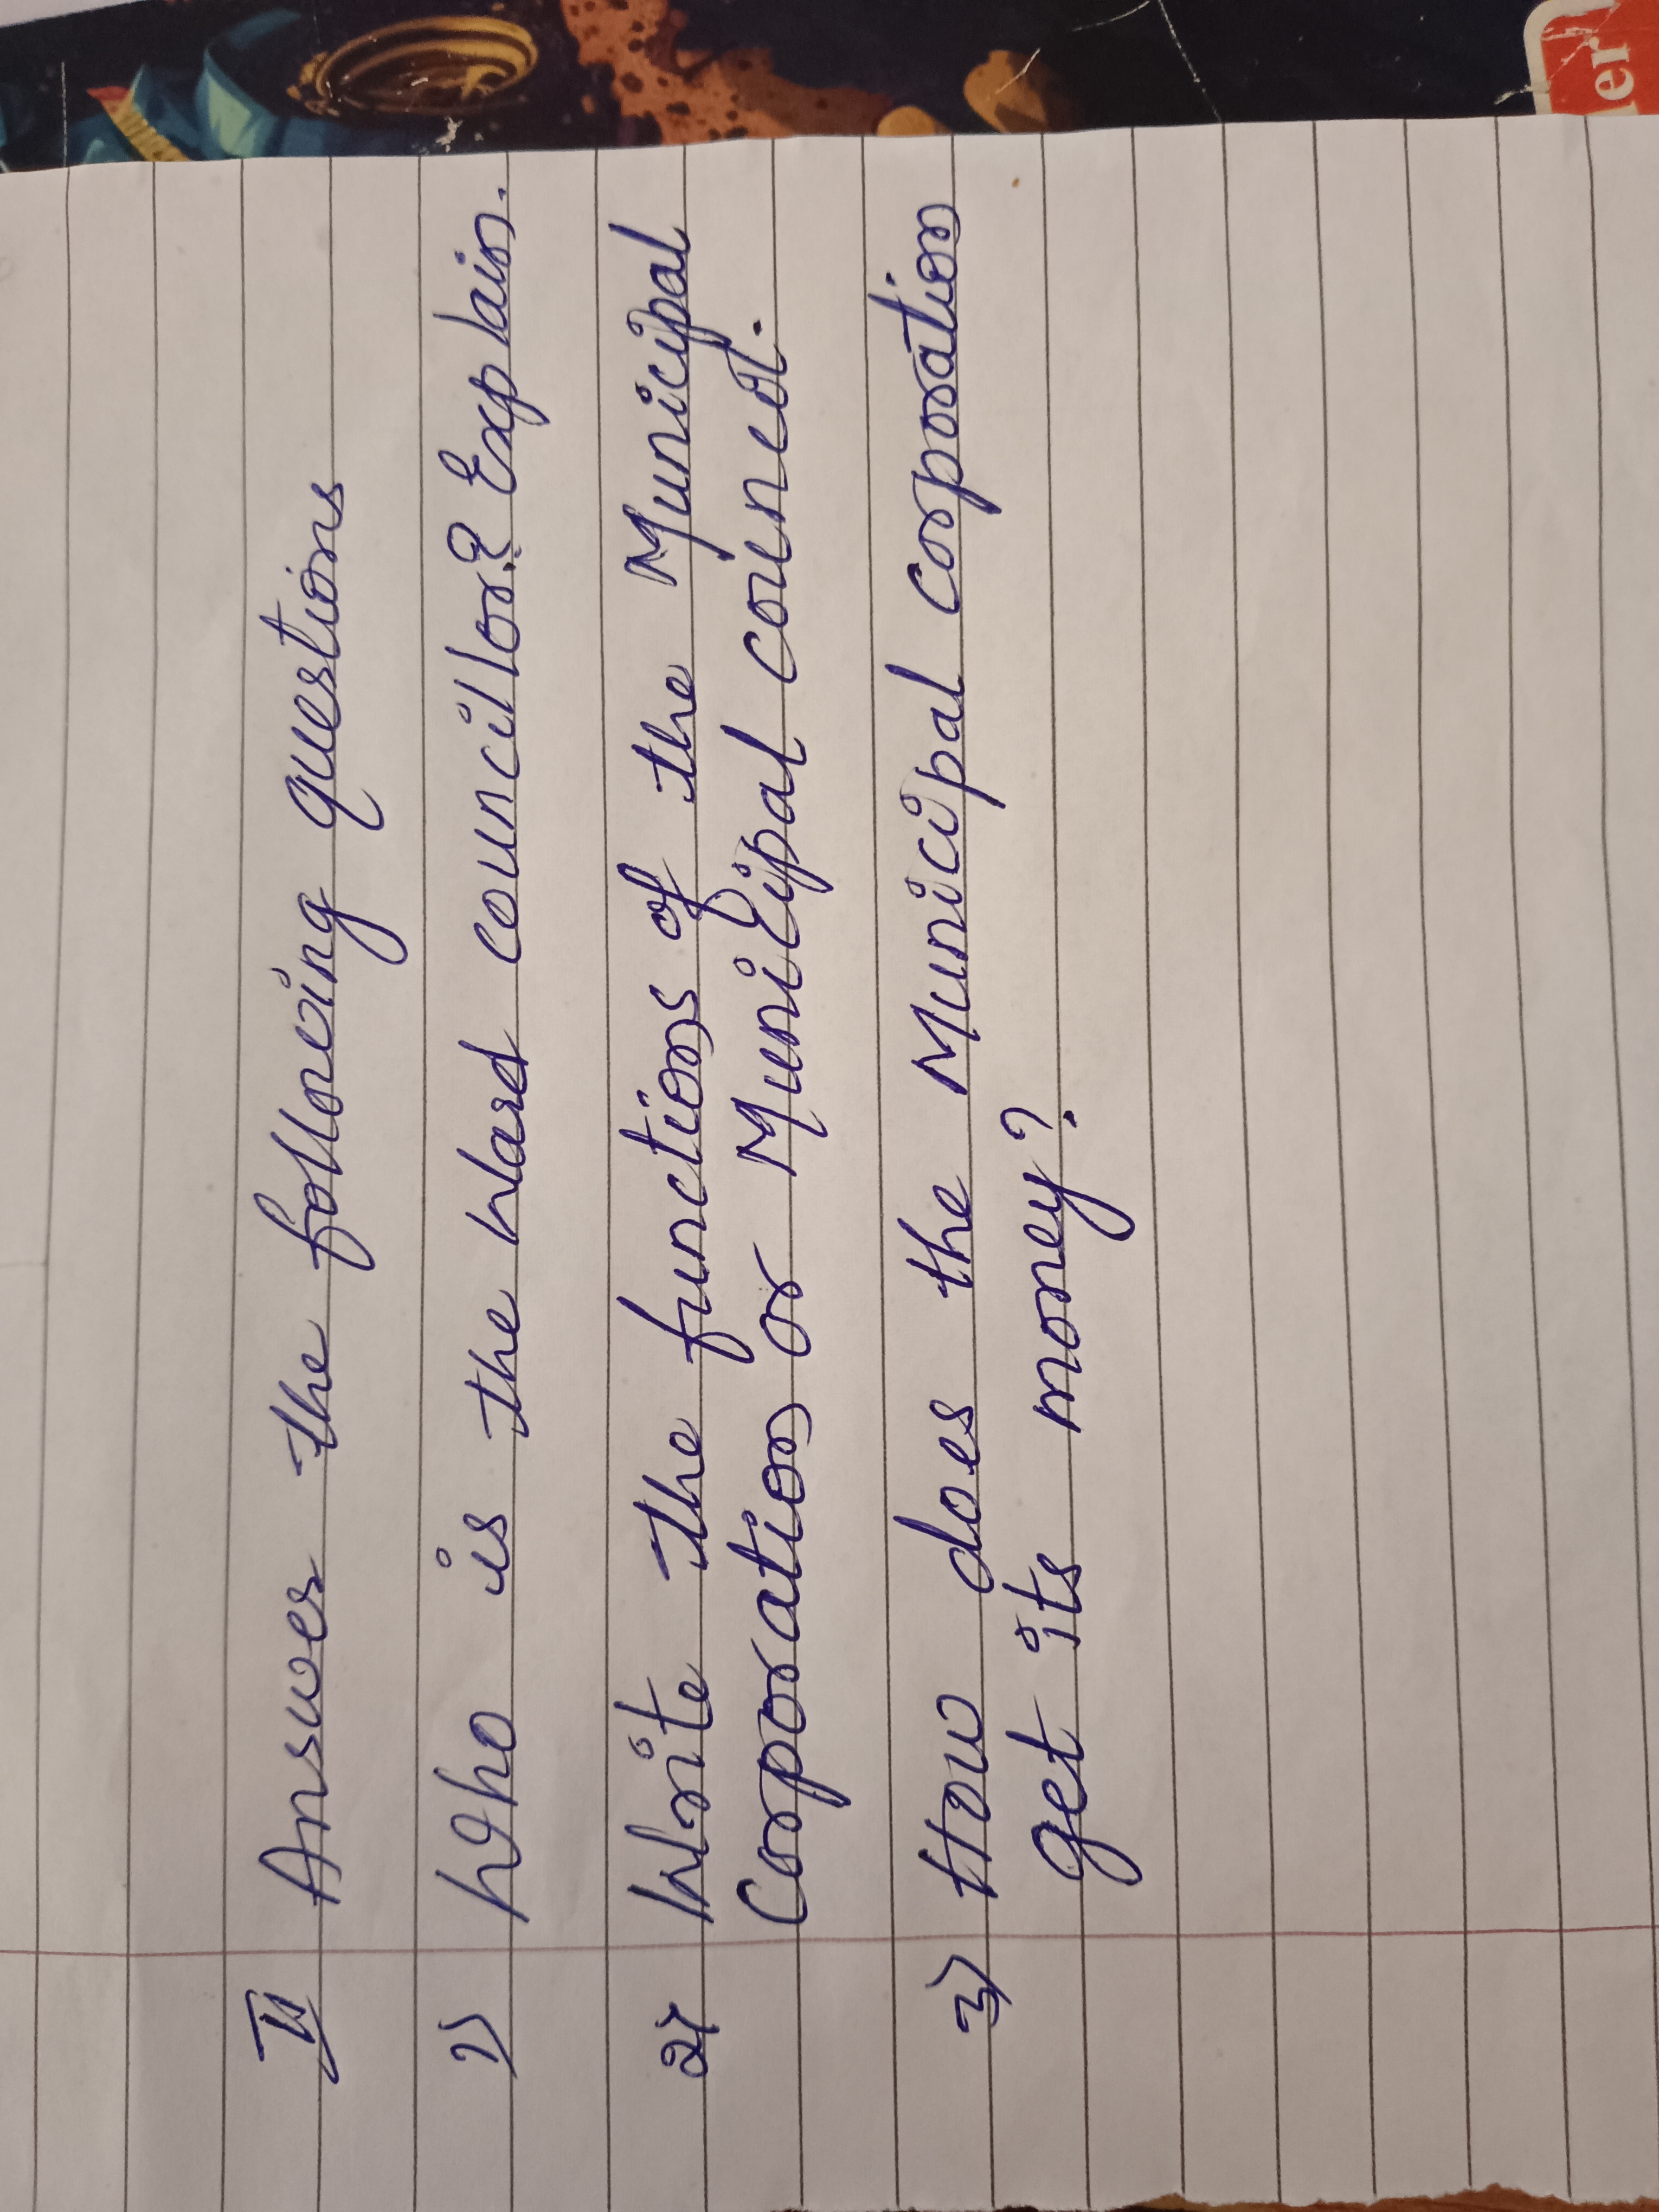 IV Answer the following questions
1) Who is the Ward councillor? Explain.
2) Write the functions of the Municipal
Corporation or Municipal council.
3) How does the Municipal corporation
get its money?
er